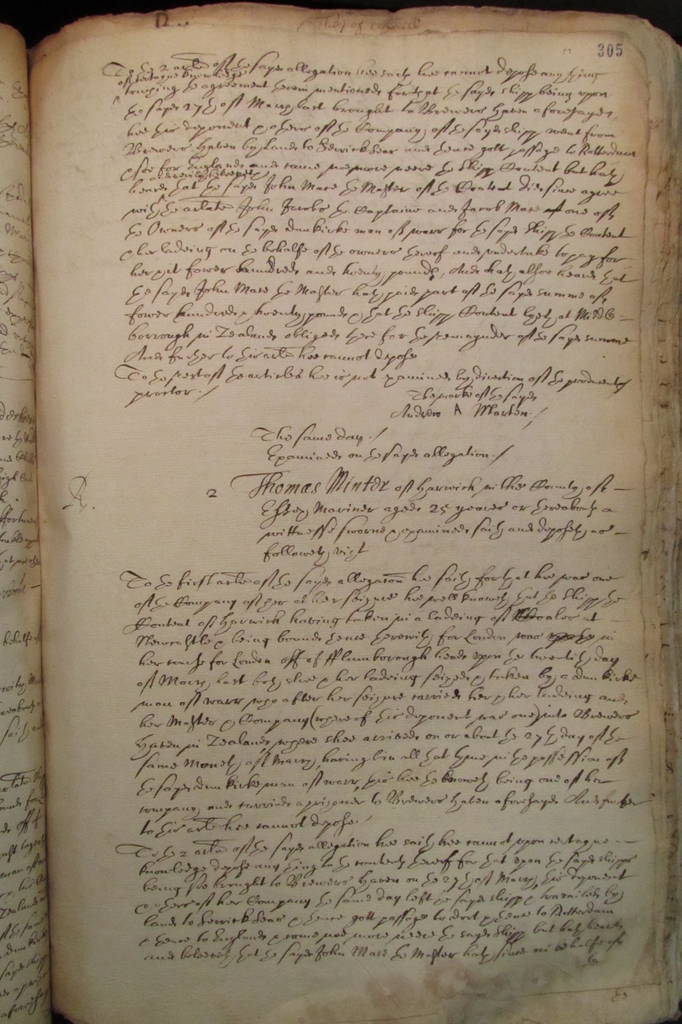 305
To the 2 article of the sayd allegation hee saith hee cannot depose any thing
of certaine knowledge
touching the agreement therein mentioned for that the sayd shipp being upon
the sayd 27th of March last brought to Brewers Haven aforesayd,
hee this deponent & others of the Company of the sayd shipp went from
Brewers Haven by land to and thence gott passage to Rotterdam
& soe for England and came noe more neere the shipp Content but hath
heard that the sayd John Mace the Master of the Content did since agree
with the arlate John Jacobs the Captaine and Jacob Mace one of
the Owners of the sayd dunkirke man of warr for the sayd shipp the Content
& her ladeing on the behalfe of the owners thereof and undertake to pay for
her fower hundred and twenty pounds, And hath alsoe heard that
the sayd John Mace the Master hath paid part of the sayd summe of
fower hundred & twenty pounds & that the shipp Content lyeth at Middle=
borrough in Zealand obliged there for the remaynder of the sayd summe
And further to this article hee cannot depose
To the rest of the articles hee is not examined by direction of the producents
proctor./
The marke of the sayd
Andrew A Marten./
The same day./
Examined on the sayd allegation./
2 Thomas Minter of Harwich in the County of
Essex Mariner aged 25 yeares or thereabouts a
wittnesse sworne & examined saith and deposeth as
followeth, vizt
To the first article of the sayd allegation hee saith for that hee was one
of the Company of her at her seizure hee well knoweth that the shipp the
Content of Harwich having taken in a ladeing of Coales at
Newcastle & being bound thence therewith for London was in
her course for London off of fflamborough head upon the twentith day
of March last both shee & her ladeing seized & taken by a dunkirke
man of warr who after her seizure carried her & her ladeing and
her Master & Company (whereof this deponent was one) into Brewers
Haven in Zealand where shee arrived on or about the 27th day of the
same Moneth of March, having bin all that tyme in the possession of
the sayd dunkirke man of warr, this hee knoweth being one of her
company and carried a prisoner to Brewers Haven aforesayd And further
to this article hee cannot depose./
To the 2 article of the sayd allegation hee saith hee cannot upon certayne
knowledge depose any thing to the contents thereof for that upon the sayd shipps
being soe brought to Brewers Haven on the 27th of March, this deponent
& others of her Company the same day left the sayd shipp & travailed by
land to & thence gott passage to dort & thence to Rotterdam
& thence to England & came noe more neere the sayd shipp but hath heard
and beleeveth that the sayd John Mace the Master hath since in behalfe of